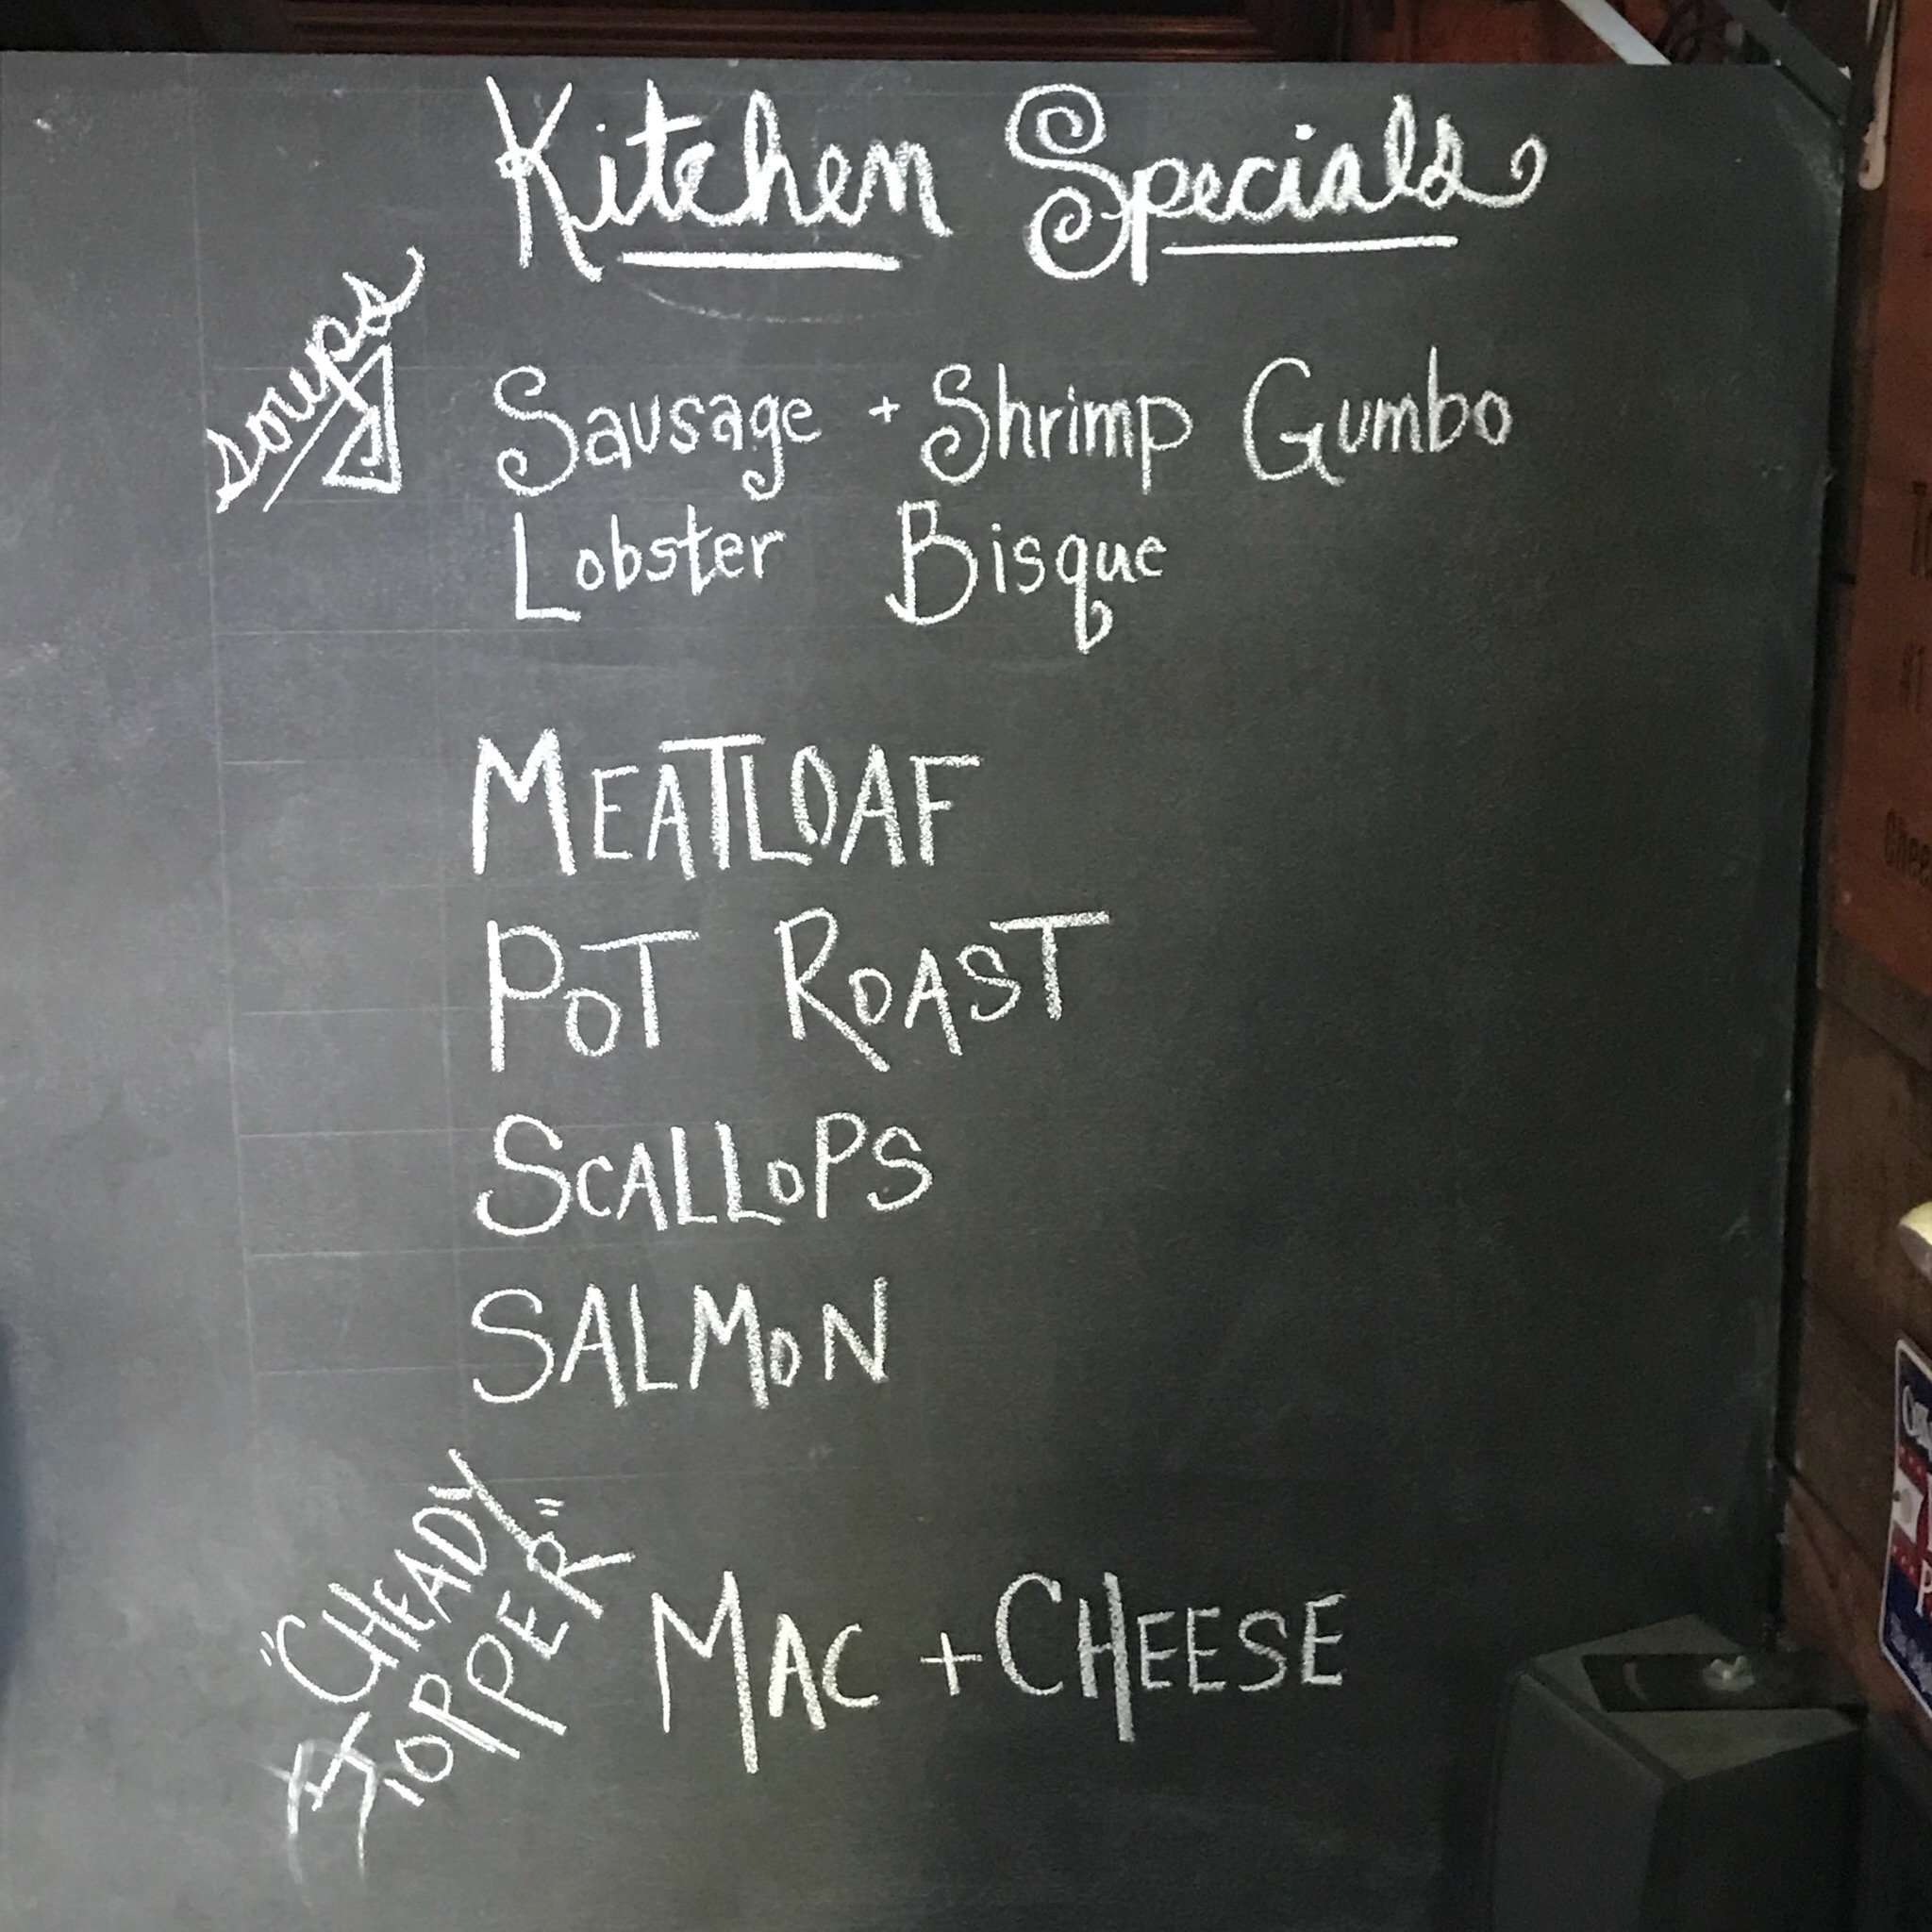 Kitchen Specials
soups
Sausage + Shrimp Gumbo
Lobster Bisque
MEATLOAF
POT ROAST
SCALLOPS
SALMON
"CHEADY
TOPPER"
MAC + CHEESE